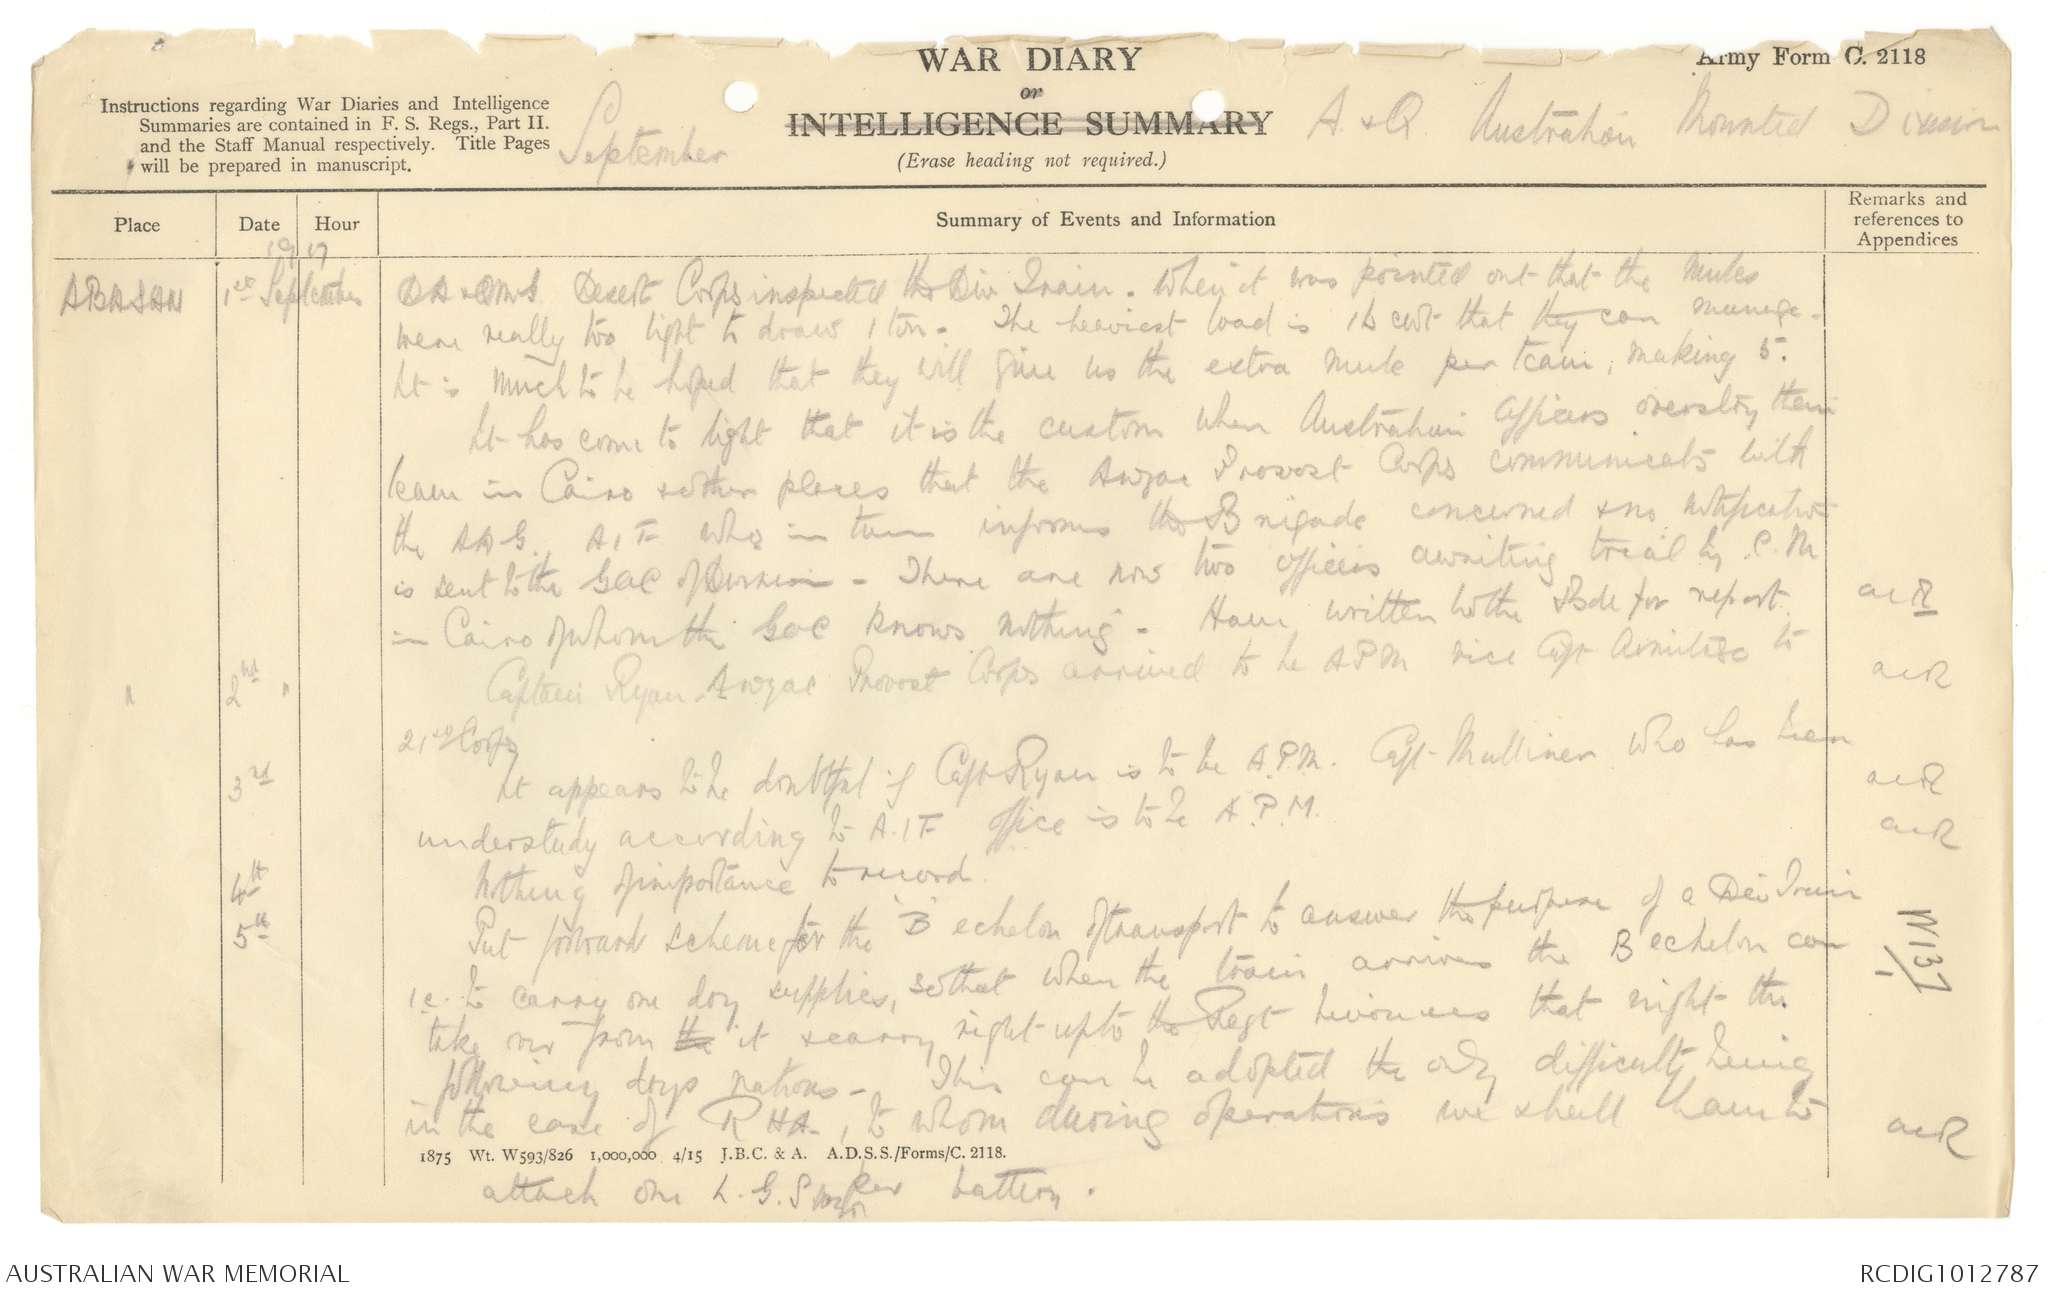 WAR DIARY
or
INTELLIGENCE SUMMARY
(Erase heading not required.)
Army Form C. 2118
Instructions regarding War Diaries and Intelligence
Summaries are contained in F. S. Regs., Part II.
and the Staff Manual respectively. Title Pages
will be prepared in manuscript.
September
A. & Q. Australian Mounted Division
Place
Date
Hour
Summary of Events and Information
Remarks and
references to
Appendices
1917
ABASAN 1st September DA & QMG Desert Corps inspected the Div Train. When it was pointed out that the mules
were really too light to draw 1 ton. The heaviest load is 16 cwt that they can manage.
It is much to be hoped that they will give us the extra mule per team, making 5.
It has come to light that it is the custom when Australian Officers overstay their
leave in Cairo & other places that the Anzac Provost Corps communicate with
the AAG., AIF who in turn informs the Brigade concerned & no notification
is sent to the GOC of Division - There are now two officers awaiting trial by C.M
in Cairo of whom the GOC knows nothing - Have written to the Bde for report. acR
" 2nd " Captain Ryan Anzac Provost Corps arrived to be APM vice Capt Armitage to acR
21st Corps
3rd It appears to be doubtful if Capt Ryan is to be A.P.M. Capt Mulliner who has been acR
understudy according to A.I.F. office is to be A.P.M. acR
4th Nothing of importance to record.
5th Put forward scheme for the 'B' echelon of transport to answer the purpose of a Div Train W137
ie. to carry one day supplies, so that when the train arrives the B echelon can
take over from the it & carry right up to the Regt bivouacs that night the
following days rations - This can be adopted the only difficulty being
in the case of RHA, to whom during operations we shall have to acR
1875 Wt. W593/826 1,000,000 4/15 J.B.C. & A. A.D.S.S./Forms/C. 2118.
attach one L.G.S wagon per battery.
AUSTRALIAN WAR MEMORIAL
RCDIG1012787